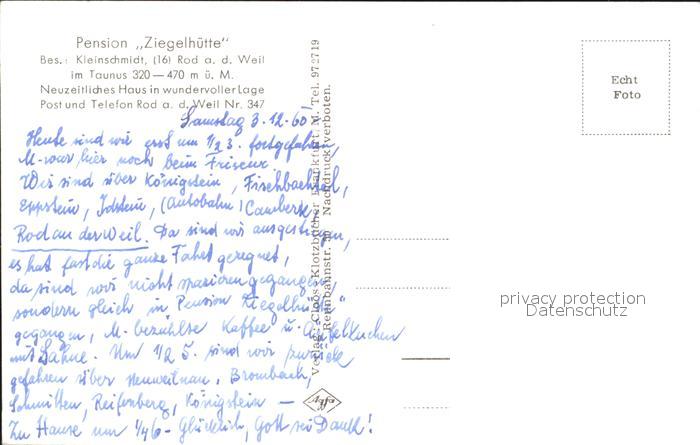 Pension „Ziegelhütte"
Bes.: Kleinschmidt, (16) Rod a. d. Weil
im Taunus 320—470 m ü. M.
Neuzeitliches Haus in wundervoller Lage
Post und Telefon Rod a. d. Weil Nr. 347
Samstag 3.12.60
Heute sind wir erst um 1/2 3. fortgefahren,
M. war hier noch beim Friseur.
Wir sind über Königstein, Fischbachtal,
Eppstein, Idstein, (Autobahn) Camberg
Rod an der Weil. Da sind wir ausgestiegen,
es hat fast die ganze Fahrt geregnet,
da sind wir nicht spazieren gegangen,
sondern gleich in Pension Ziegelhütte"
gegangen, M. bezahlte Kaffee u. Apfelkuchen
mit Sahne. Um 1/2 5. sind wir zurück
gefahren über Neuweilnau, Brombach,
Schmitten, Reifenberg, Königstein —
Zu Hause um 1/4 6 - Glücklich, Gott sei Dank!
Verlag: Cloos, Klotzbücher Frankfurt, M. Tel. 972719
Rennbahnstr. Nachdruck verboten.
Agfa
Echt
Foto
privacy protection
Datenschutz